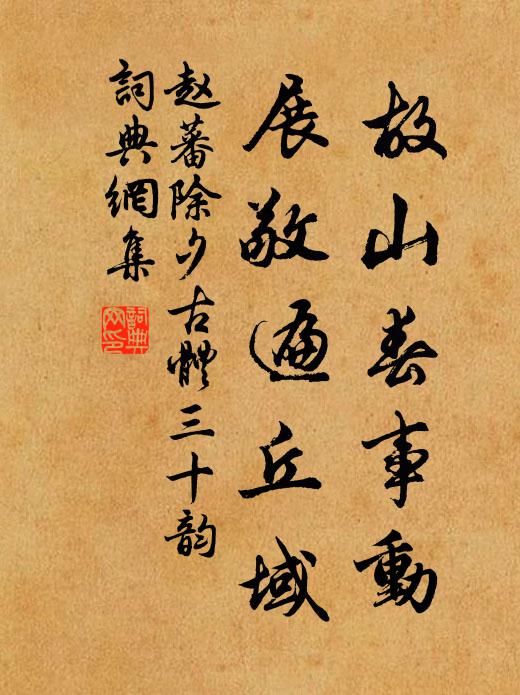 故山春事動
展敬遍丘域
赵蕃除夕古體三十韵
詞典網集
詞典網印